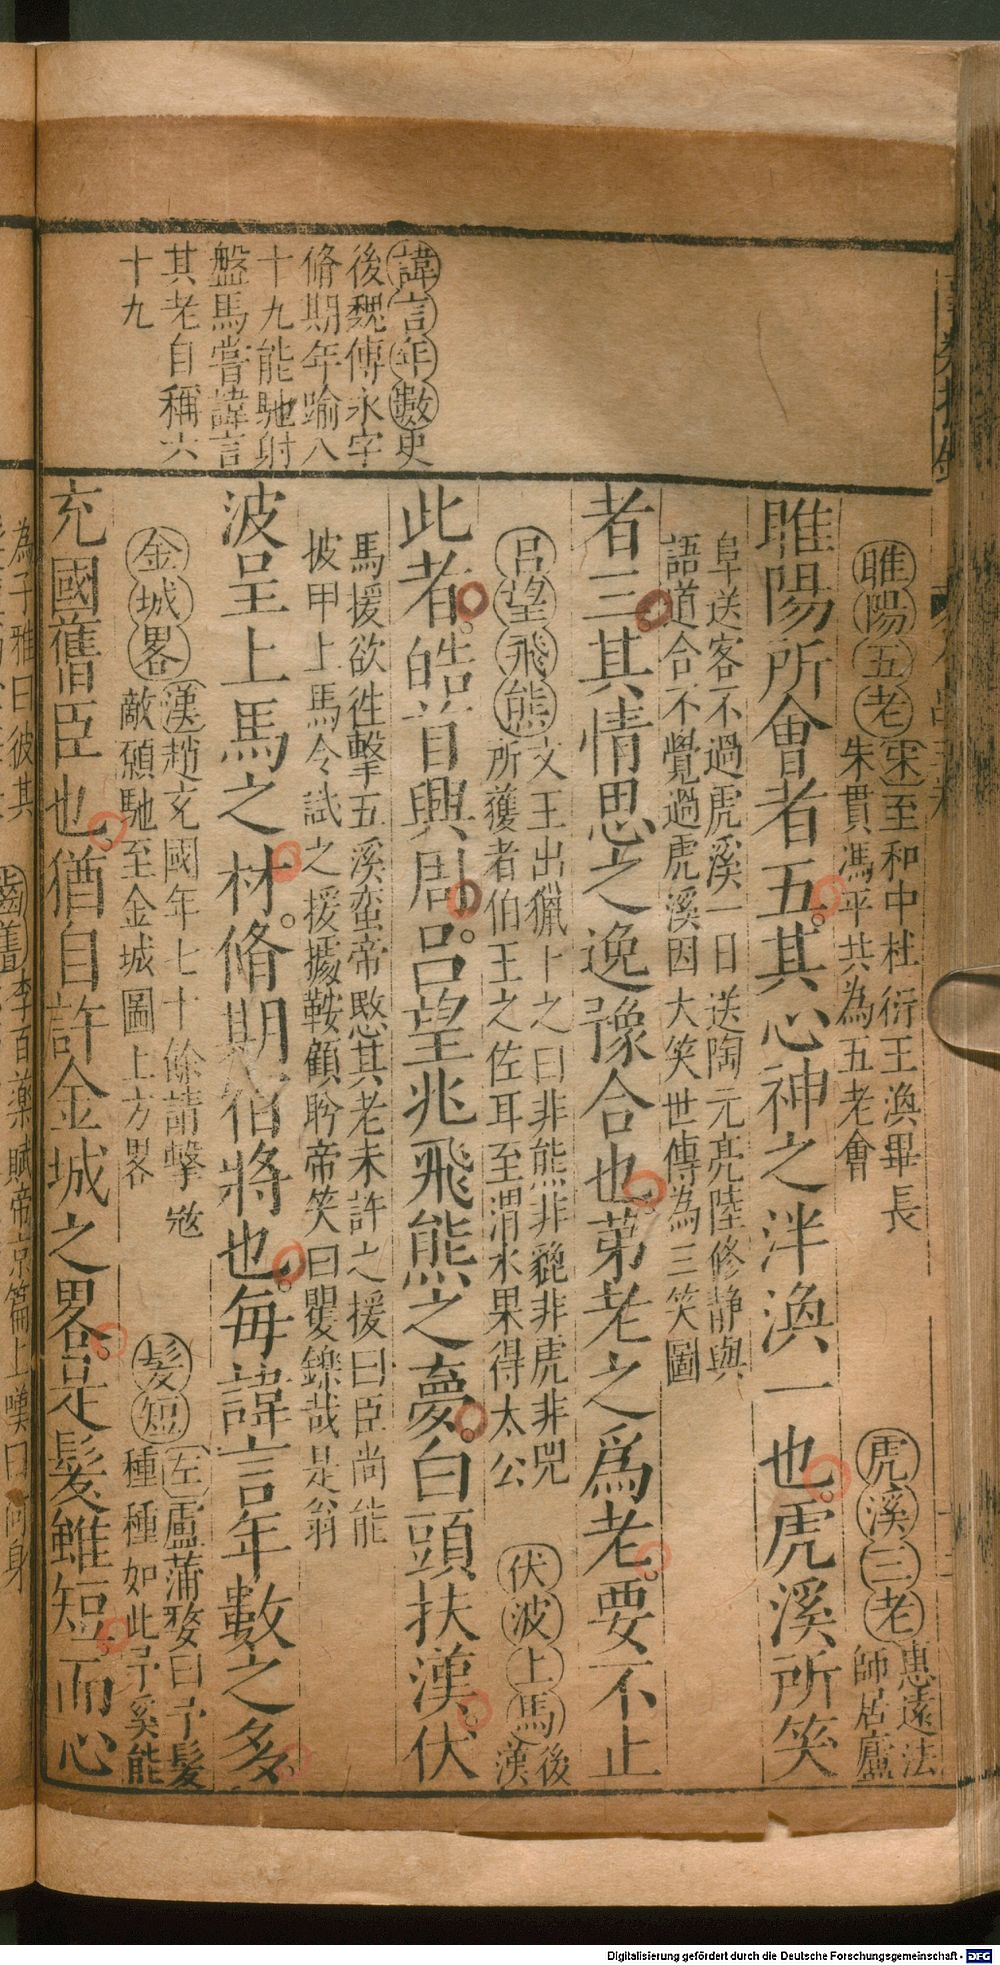 諱言年數史
後魏傅永字
脩期年踰八
十九能馳射
盤馬嘗諱言
其老自稱六
十九
睢陽五老宋至和中杜衍王渙畢長
朱貫馮平共為五老會
虎溪三老惠遠法
師居廬
睢陽所會者五其心神之泮渙一也虎溪所笑
阜送客不過虎溪一日送陶元亮陸修静與
語道合不覺過虎溪因大笑世傳為三笑圖
者三其情思之逸豫合也第老之爲老要不止
呂望飛熊文王出獵卜之曰非熊非貔非虎非兕
所獲者伯王之佐耳至渭水果得太公
伏波上馬後
漢
此者皓首興周呂望兆飛熊之夢白頭扶漢伏
馬援欲徃擊五溪蛮帝愍其老未許之援曰臣尚能
披甲上馬令試之援據鞍顧盼帝笑曰矍鑠哉是翁
波呈上馬之材脩期宿將也每諱言年數之多
金城畧漢趙充國年七十餘請擊㓂
敵願馳至金城圖上方畧
髮短左盧蒲嫳曰予髮
種種如此予奚能
充國舊臣也猶自許金城之畧是髮雖短而心
為子雅曰彼其
齒舊李百藥賦帝京篇上嘆曰何身
Digitalisierung gefördert durch die Deutsche Forschungsgemeinschaft - DFG